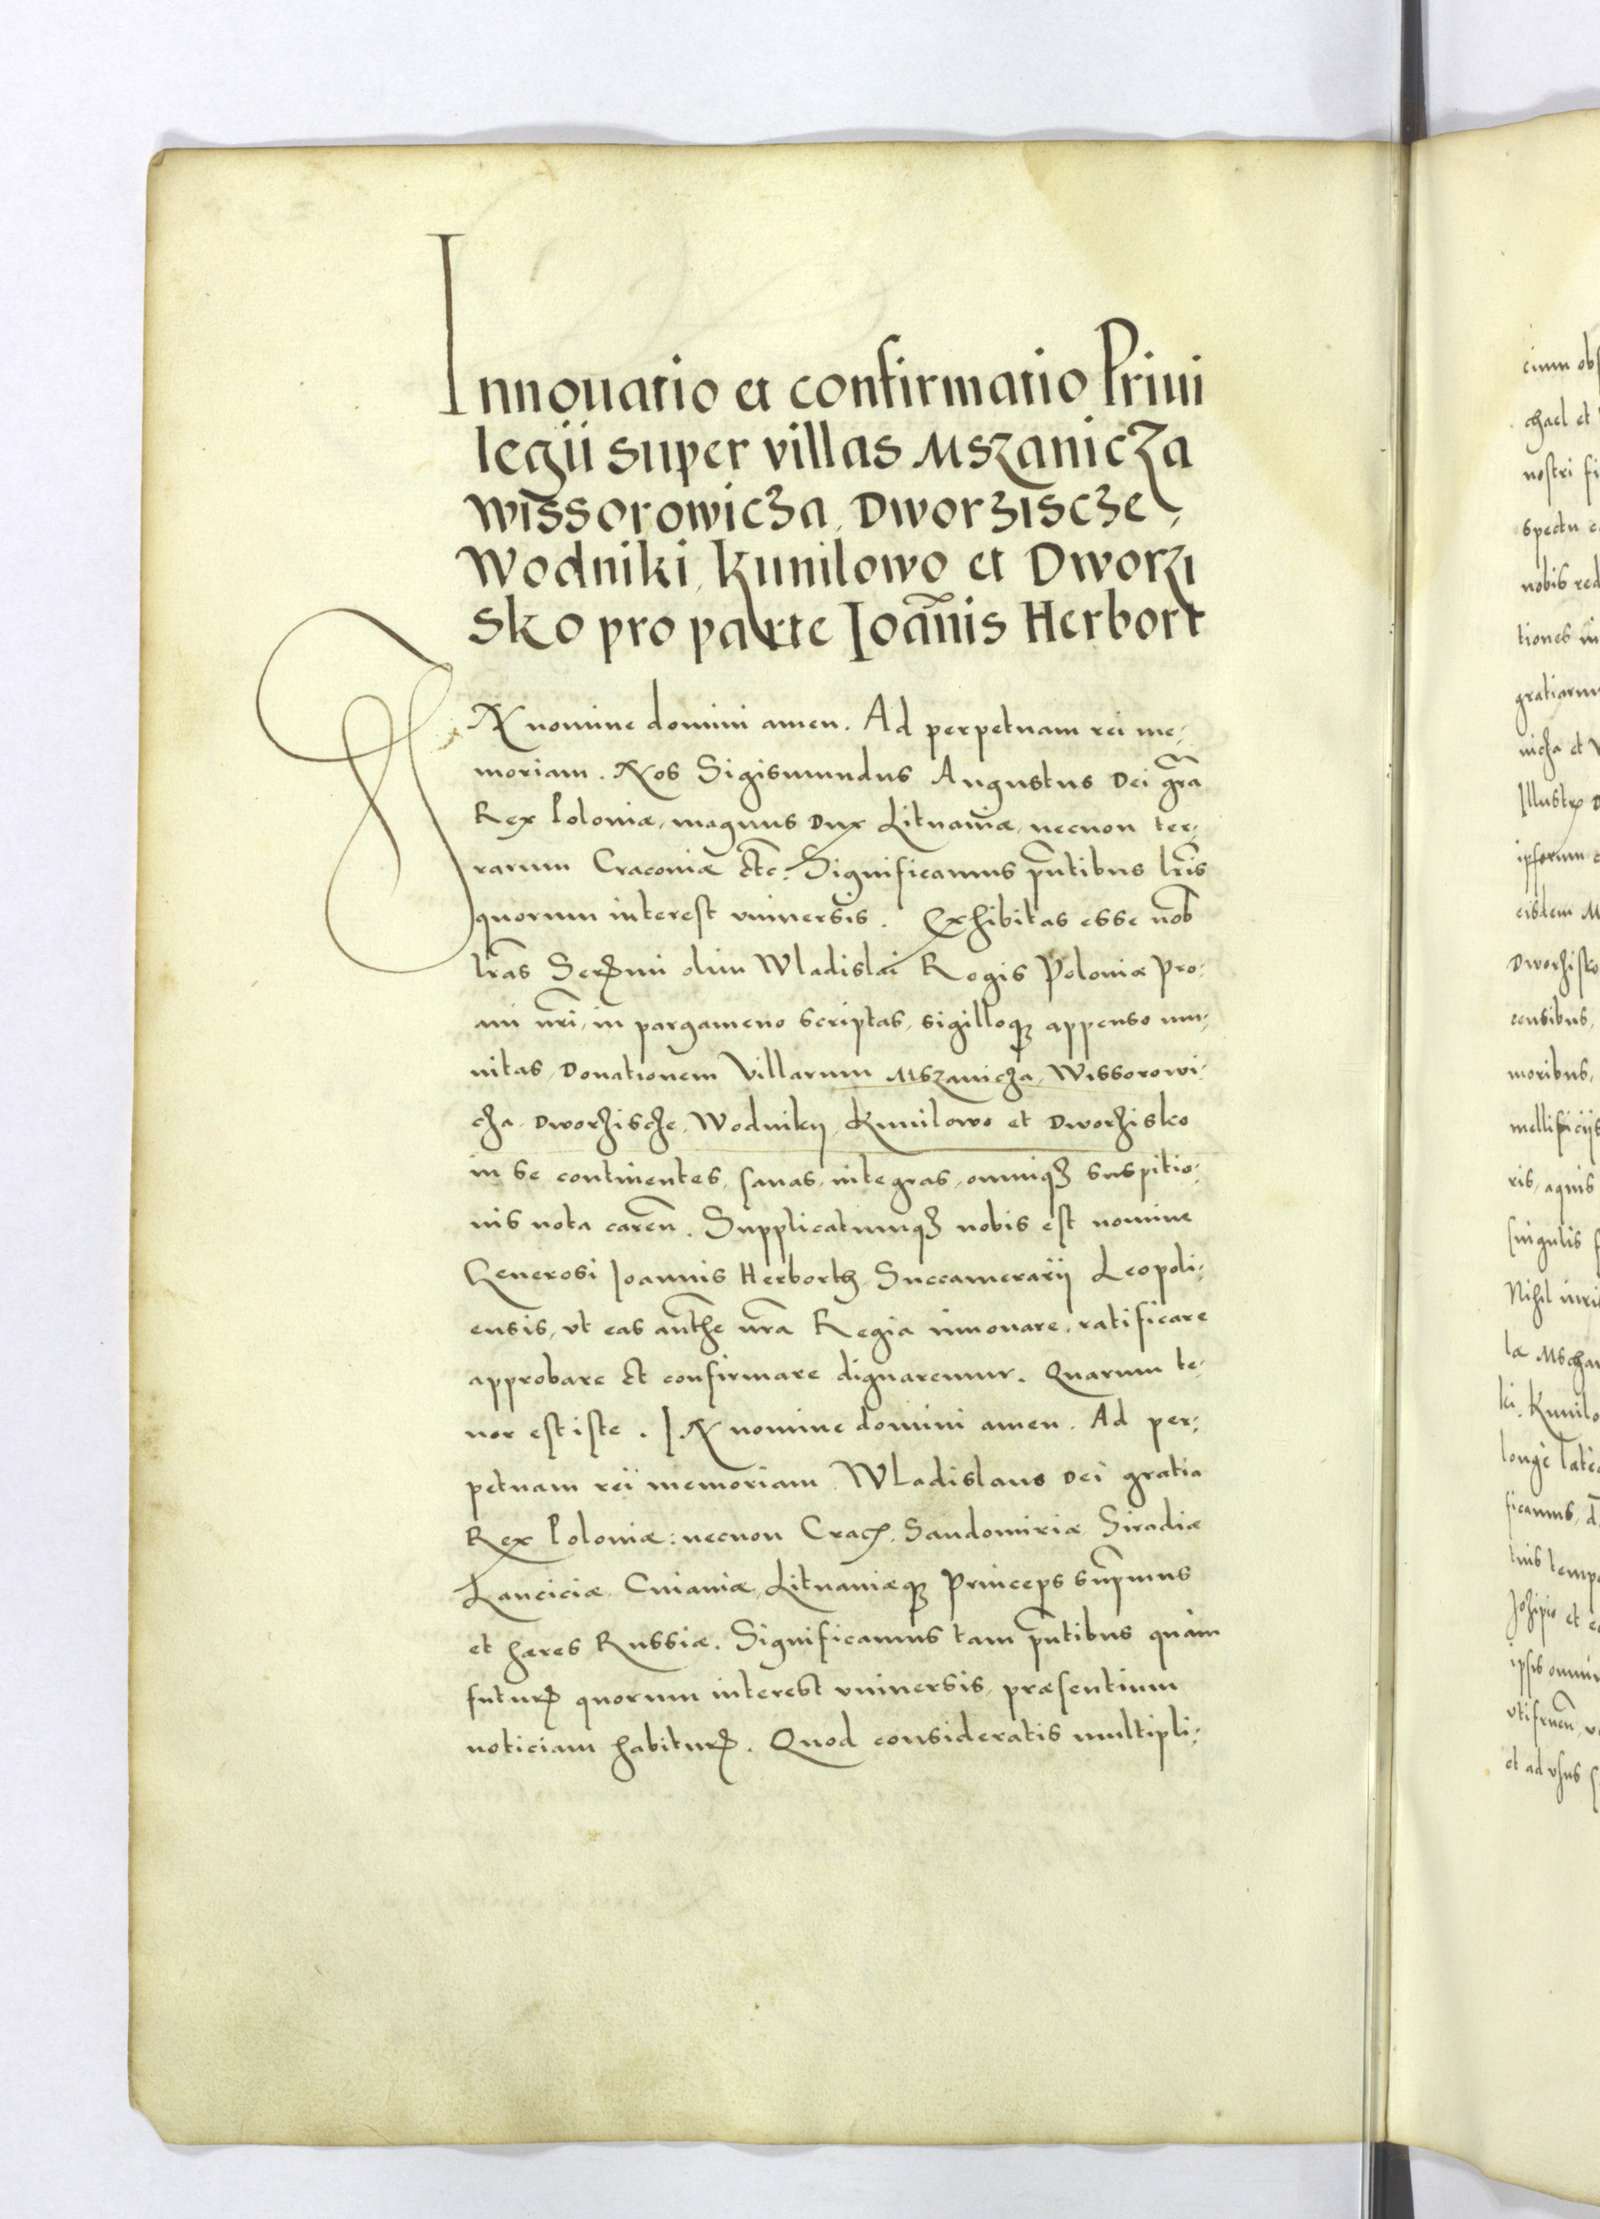 Innouatio et confirmatio Priui
legii super villas Mszanicza
Wissorowicza, Dworziscze,
Wodniki, Kunilowo et Dworzi
sko pro parte Ioãnis Herbort
IN nomine domini amen. Ad perpetuam rei me,
moriam. Nos Sigismundus Augustus Dei gr̃a
Rex Poloniæ, magnus Dux Lituaniæ, necnon ter,
rarum Cracouiæ etc. Significamus pñtibus lr̃is
quorum interest vniuersis. Exhibitas esse nob̃
lr̃as Serꝫmi olim Wladislai Regis Poloniæ Pro,
aui nr̃i, in pargameno scriptas, sigilloqꝫ appenso mu,
nitas, Donationem Villarum Mszanicza, Wissorowi,
cza, Dworziscze, Wodniky, Kunilowo et Dworzisko
in se continentes, sanas, integras, omniqꝫ suspitio,
nis nota careñ. Supplicatumqꝫ nobis est nomine
Generosi Ioannis Herborth Succamerarij Leopoli,
ensis, vt eas aut̃he nr̃a Regia innouare, ratificare
approbare et confirmare dignaremur. Quarum te,
nor est iste. IN nomine domini amen. Ad per,
petuam rei memoriam. Wladislaus Dei gratia
Rex Poloniæ: necnon Cracꝭ. Sandomiriæ Siradiæ
Lanciciæ Cuiauiæ, Lituaniæqꝫ Princeps sup̃mus
et hæres Russiæ. Significamus tam pñtibus quàm
futurꝭ quorum interest vniuersis, præsentium
noticiam habiturꝭ. Quod consideratis multipli,
cium
chael et
nostri
spectu
nobis
tiones
gratiarum
nicza et
ipsorum
eisdem
Dworzisko
censibus,
moribus,
mellificijs
ris, aquis
singulis
Nihil
ki, Kunilo
longè
ficamus,
tuis
et
ipsis
et ad vsus